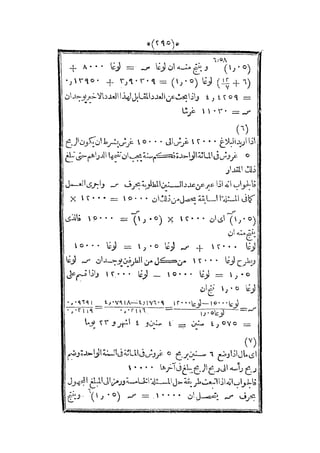 *(٢٩٥)*
٦/٥٨
(١٫٠٥) وينتج منه ان لوغا سـ = لوغا ٨٠٠٠ +
(٦ + ١٢/٧) لوغا (١٫٠٥) = ٣٫٩٠٣٠٩ + ٠٫١٣٩٥٠
= ٤٫٠٤٢٥٩ واذا بحث عن العدد المقابل لهذا العدد الاخير يوجد ان
سـ = ١١٠٣٠ غرشا
(٦)
اذا اريد ابلاغ ١٢٠٠٠ غرش الى ١٥٠٠٠ غرش بشرط ان يكون الربح
٥ غروش فى المائة الواحدة فكم سنة يجب ان تبقيها الدراهم حتى تبلغ
ذلك المقدار
فالجواب انه اذا عبر عن عدد السنين المطلوبة بحرف سـ واجرى العمل
كما فى المسئلة السابقة يحصل من ذلك ان ١٥٠٠٠ = ١٢٠٠٠ ×
(١٫٠٥) اى ان ١٢٠٠٠ × (١٫٠٥) = ١٥٠٠٠ فالذى
ينتج منه ان
لوغا ١٢٠٠٠ + سـ لوغا ١٫٠٥ = لوغا ١٥٠٠٠
وبطرح لوغا ١٢٠٠٠ من كل من الطرفين يوجد ان سـ لوغا
١٫٠٥ = لوغا ١٥٠٠٠ − لوغا ١٢٠٠٠ واذا قسم على
لوغا ١٫٠٥ نتج ان
سـ = لوغا ١٥٠٠٠ − لوغا ١٢٠٠٠ / لوغا ١٫٠٥ = ٤٫١٧٦٠٩ − ٤٫٠٧٩١٨ / ٠٫٠٢١١٩ = ٠٫٠٩٦٩١ / ٠٫٠٢١١٩
= ٤٫٥٧٥ سنين = ٤ سنين و ٦ اشهر و ٢٣ يوما
(٧)
اى مال اذا وضع ٦ سنين بربح ٥ غروش فى المائة فى السنة الواحدة وضم
ربح رأسه الى ربح الربح يبلغ فى آخرها ١٠٠٠٠
فالجواب انه اذا اتبعت طريقة حل المسئلة الخامسة ورمز الى المبلغ المجهول
بحرف سـ يتحصل ان ١٠٠٠٠ = سـ (١٫٠٥) وينتج